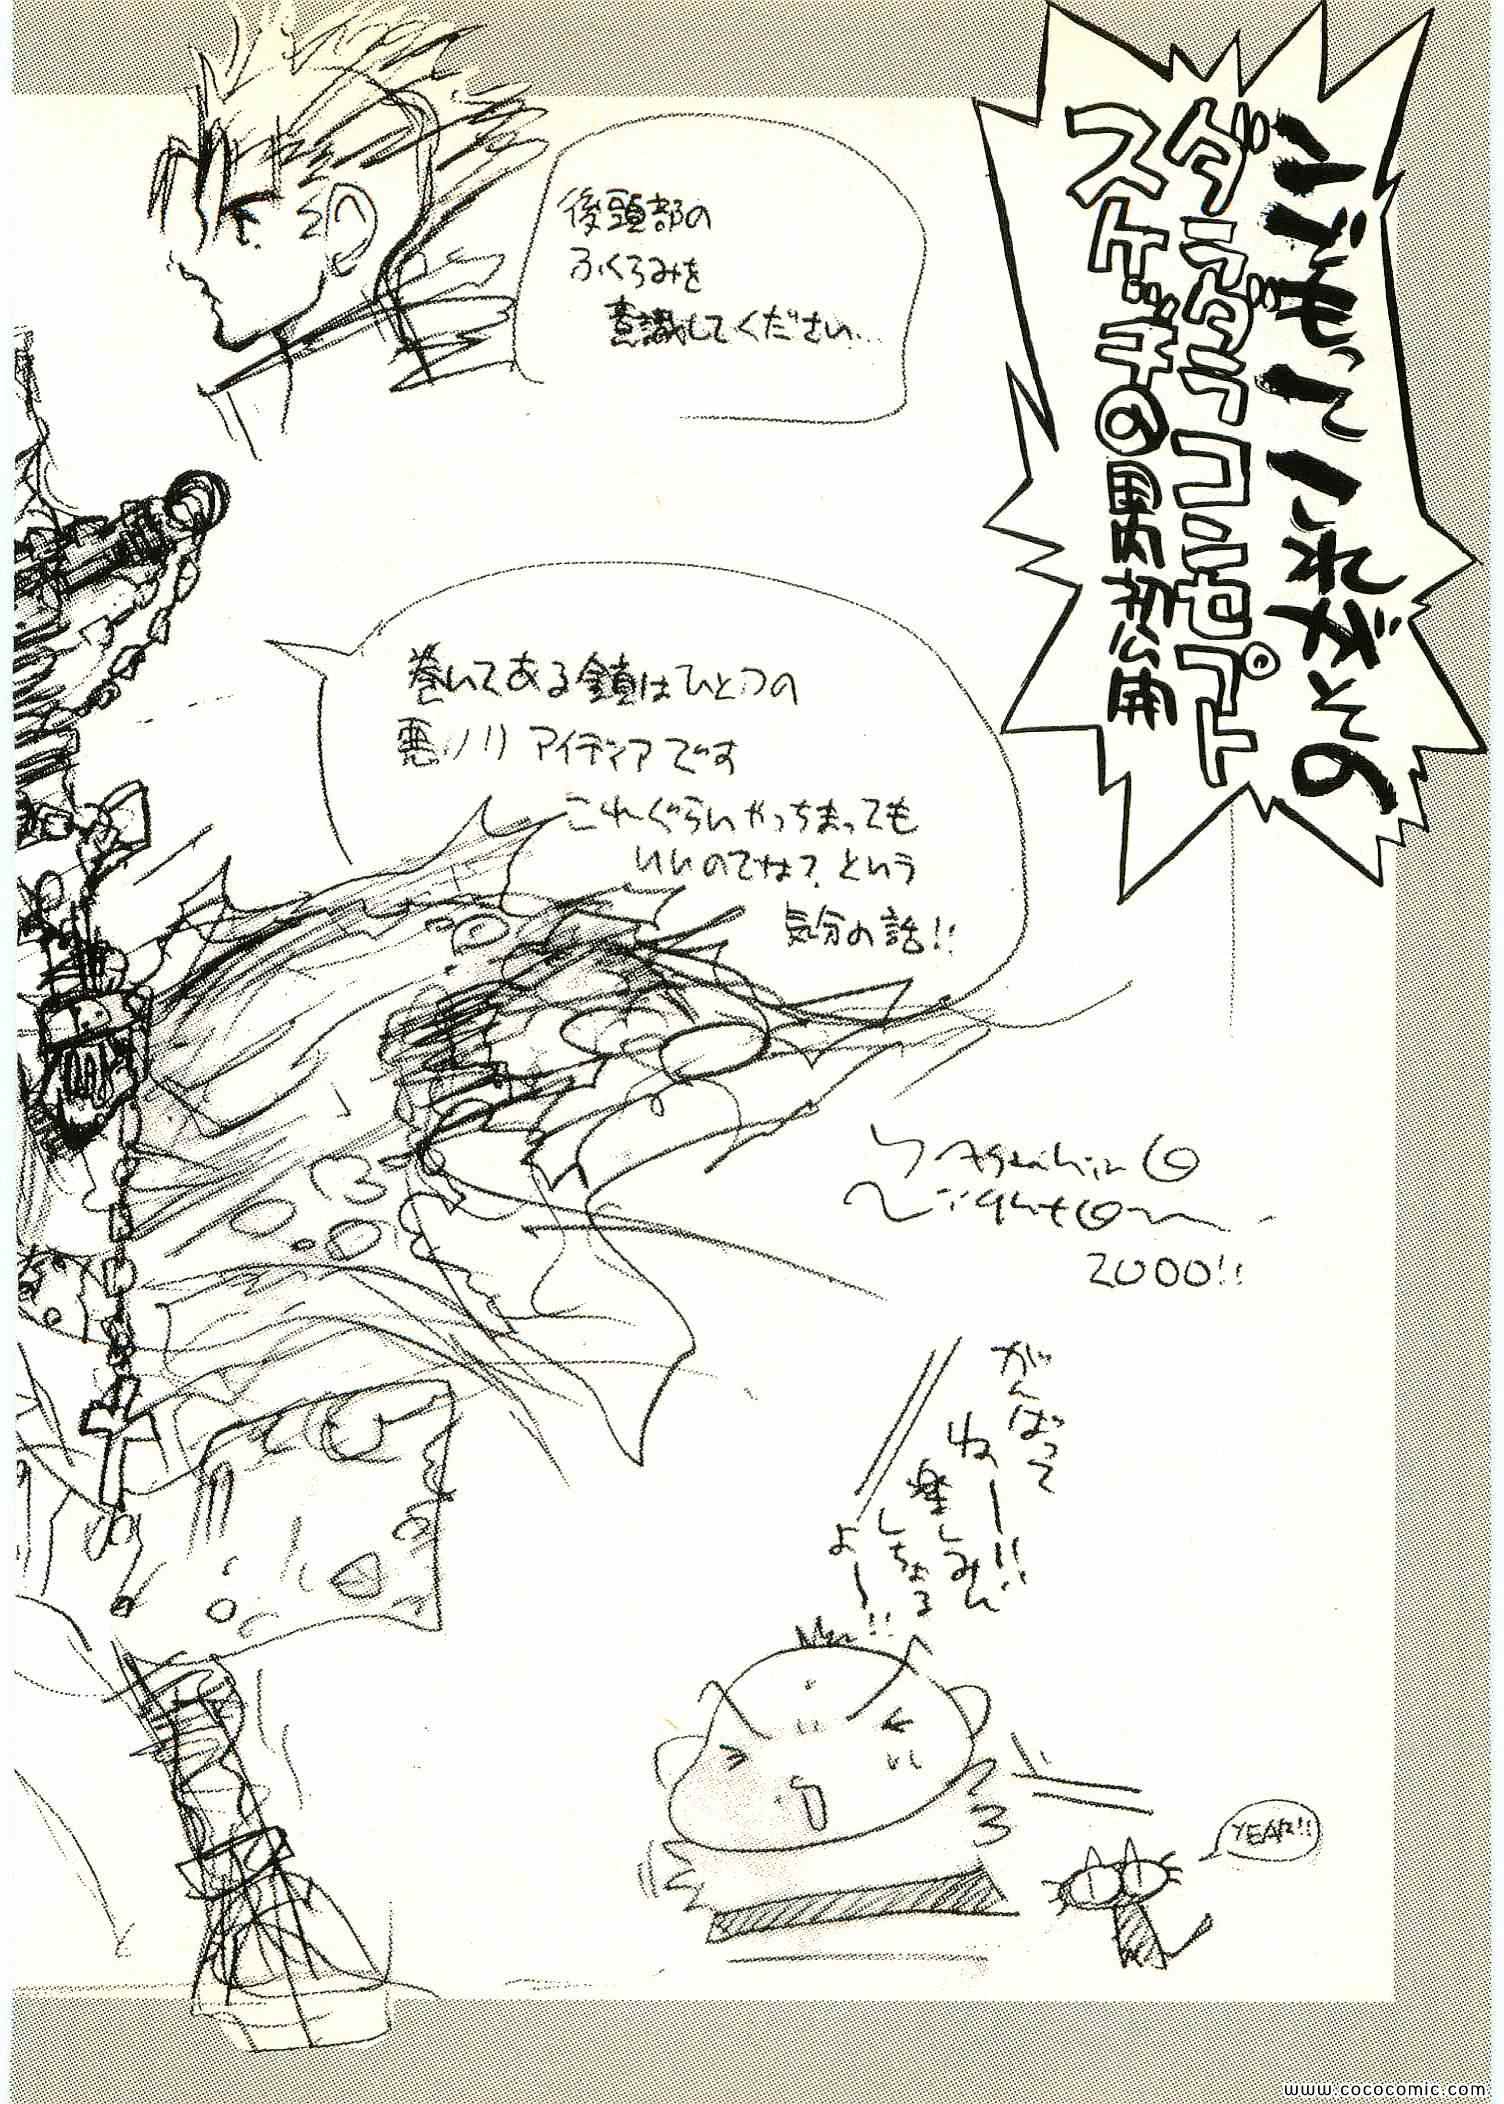 こーもってこれぞその
ダラダラコンセプト
スケッギの男初公開
後頭部の
ふくろみを
意識してください…
巻いてある鎖はひとつの
悪ノリアイディアです
これぐらいやっちまっても
いいのでは？という
気分の話!!
Nightow
2000!!
がんばって
ねー!!
楽しみに
しちょる
よー!!
YEAH!!
www.cococomic.com